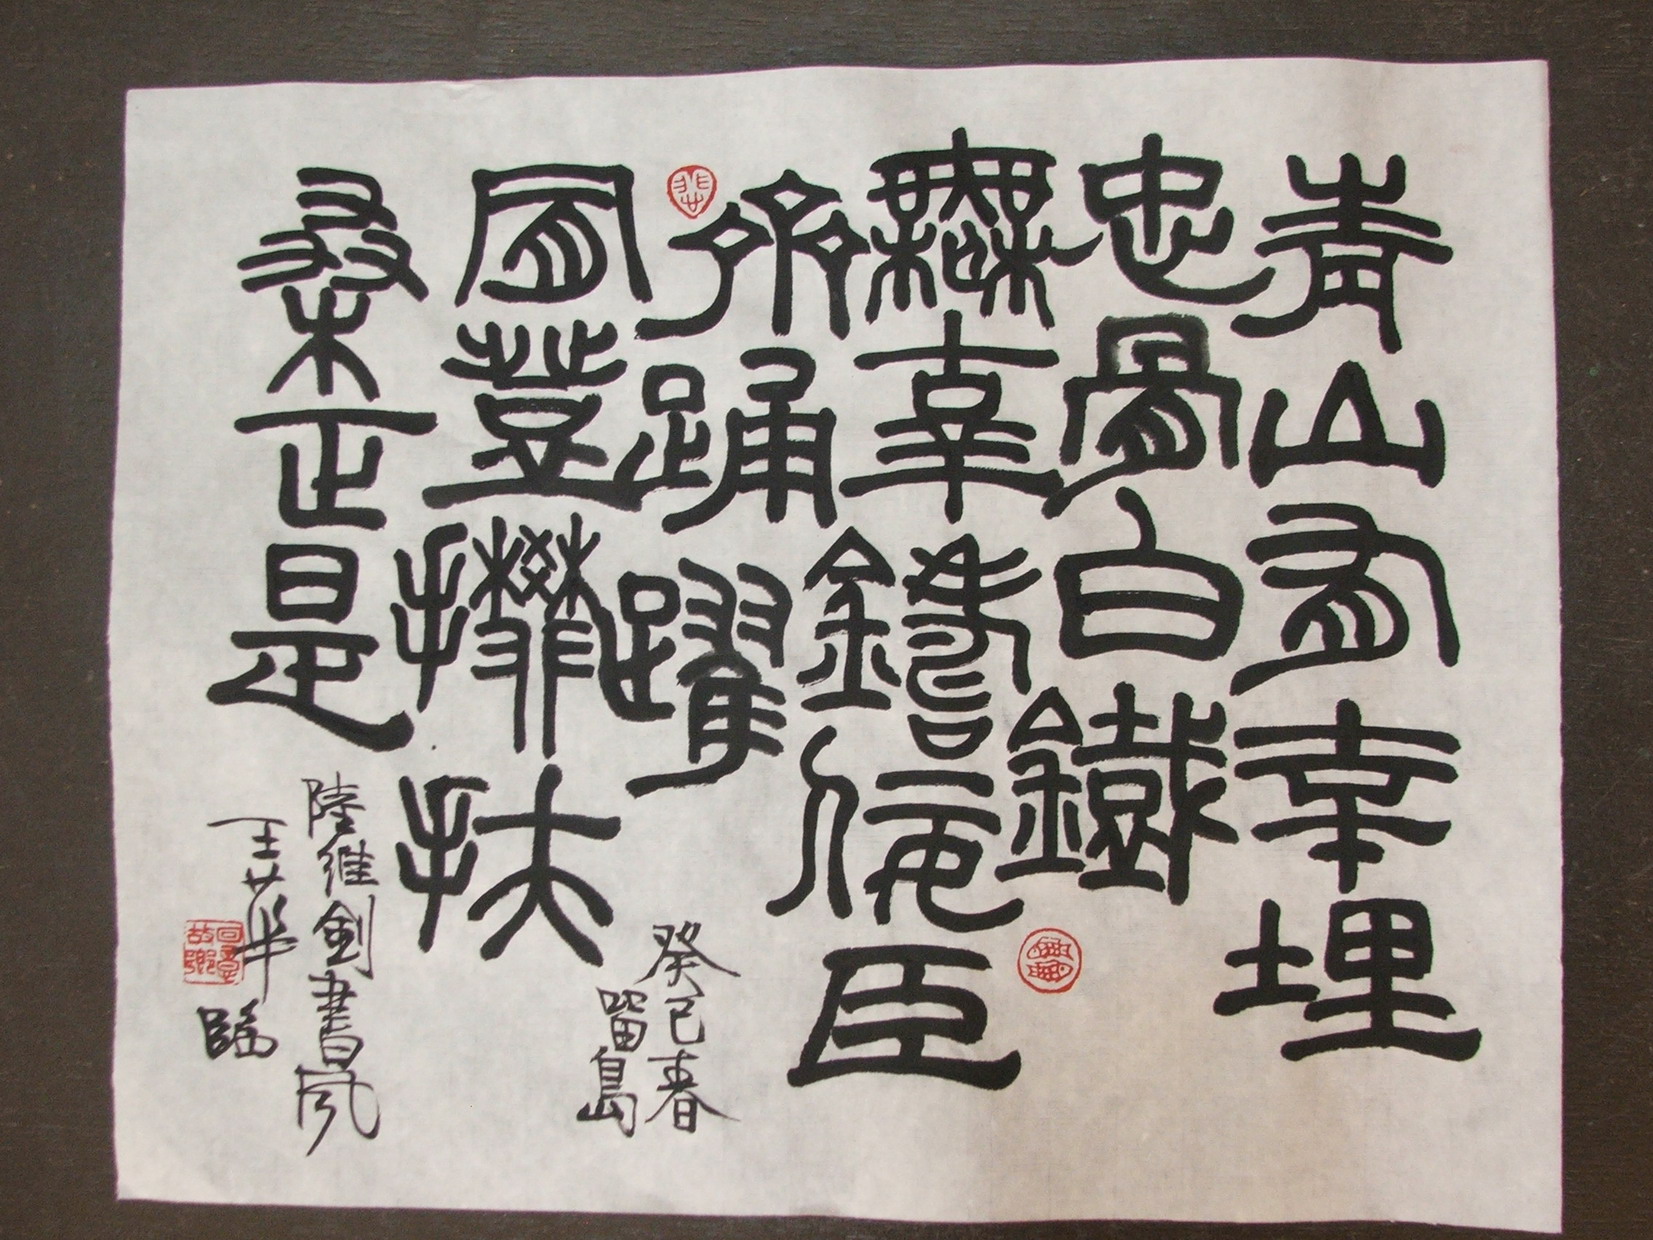 青山有幸埋
忠骨白鐵
無幸鑄佞臣
齊踊躍
肯登攀扶
桑正是
癸巳春
留島
陸維釗書風
王華臨